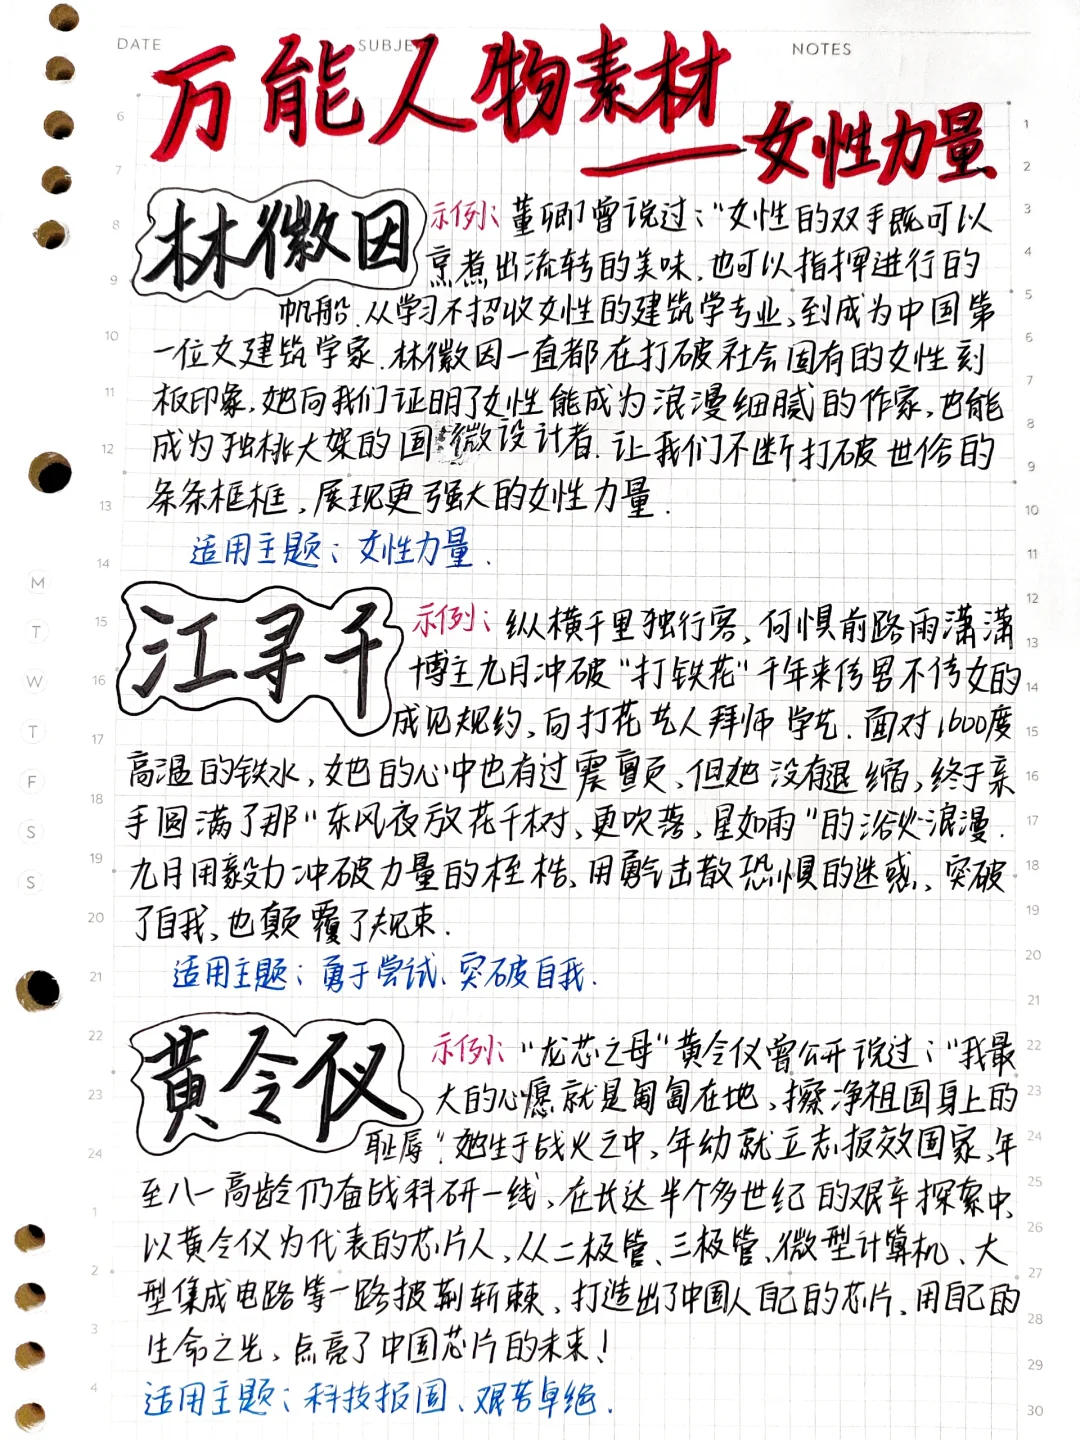 DATE SUBJE NOTES
万能人物素材
——女性力量
林徽因
示例:董卿曾说过:"女性的双手既可以
烹煮出流转的美味,也可以指挥进行的
帆船.从学习不招收女性的建筑学专业,到成为中国第
一位女建筑学家.林徽因一直都在打破社会固有的女性刻
板印象,她向我们证明了女性能成为浪漫细腻的作家,也能
成为独挑大梁的国徽设计者.让我们不断打破世俗的
条条框框,展现更强大的女性力量.
适用主题:女性力量.
江寻千
示例:纵横千里独行客,何惧前路雨潇潇
博主九月冲破"打铁花"千年来传男不传女的
成见规约,向打花艺人拜师学艺.面对1600度
高温的铁水,她的心中也有过震颤,但她没有退缩,终于亲
手圆满了那"东风夜放花千树,更吹落,星如雨"的浴火浪漫.
九月用毅力冲破力量的桎梏,用勇气击散恐惧的迷惑,突破
了自我,也颠覆了规束.
适用主题:勇于尝试、突破自我.
黄令仪
示例:"龙芯之母"黄令仪曾公开说过:"我最
大的心愿就是匍匐在地,擦净祖国身上的
耻辱".她生于战火之中,年幼就立志报效国家,年
至八一高龄仍奋战科研一线,在长达半个多世纪的艰辛探索中,
以黄令仪为代表的芯片人,从二极管、三极管、微型计算机、大
型集成电路等一路披荆斩棘,打造出了中国人自己的芯片,用自己的
生命之光,点亮了中国芯片的未来!
适用主题:科技报国、艰苦卓绝.